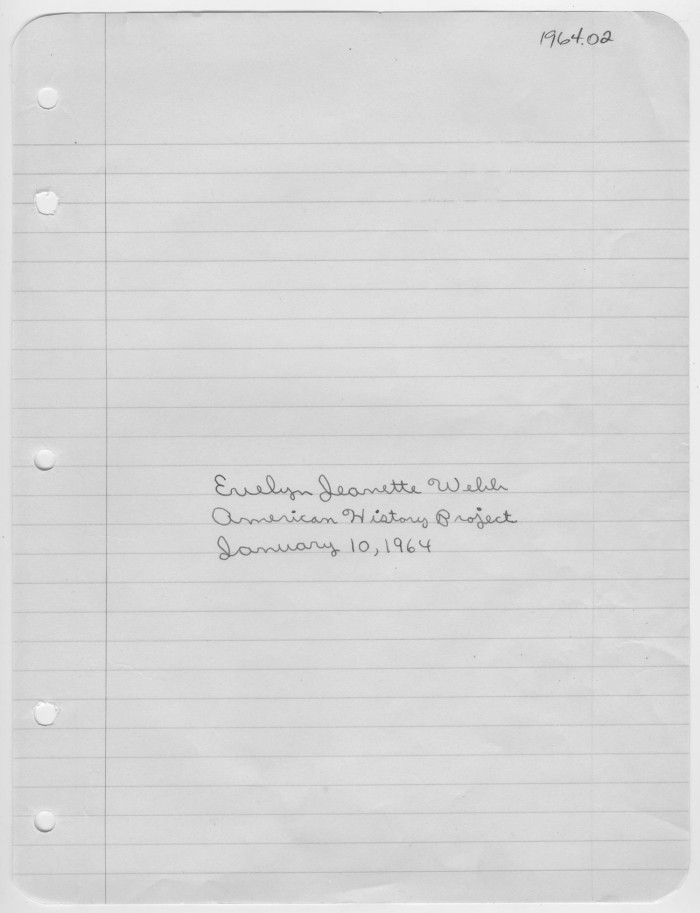 1964.02
Evelyn Jeanette Webb
American History Project
January 10, 1964